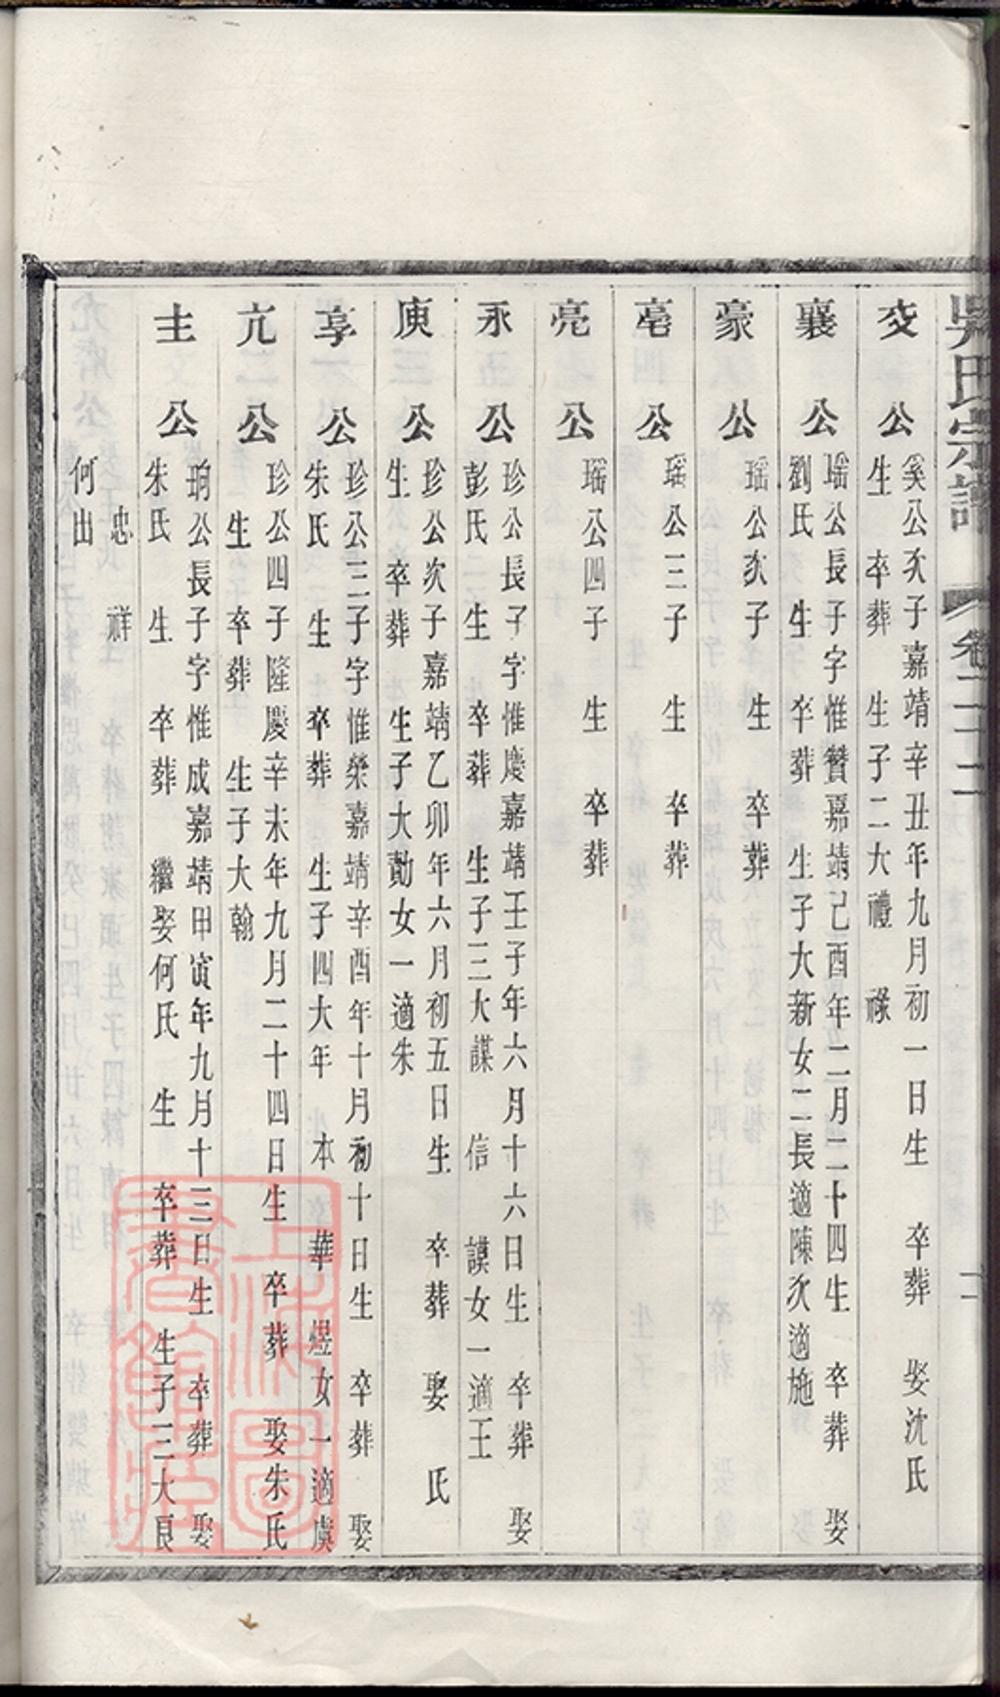 吳氏宗譜 卷二十二
交公
奚公次子嘉靖辛丑年九月初一日生 卒葬 娶沈氏
生 卒葬 生子二大禮 祿
襄公
瑶公長子字惟贊嘉靖己酉年二月二十四生 卒葬 娶
劉氏 生 卒葬 生子大新女二長適陳次適施
豪公
瑶公次子 生 卒葬
亳公
瑶公三子 生 卒葬
亮公
瑶公四子 生 卒葬
永公
珍公長子字惟慶嘉靖壬子年六月十六日生 卒葬 娶
彭氏 生 卒葬 生子三大謀 信 謨女一適王
庾公
珍公次子嘉靖乙卯年六月初五日生 卒葬 娶 氏
生 卒葬 生子大勳女一適朱
享公
珍公三子字惟榮嘉靖辛酉年十月初十日生 卒葬 娶
朱氏 生 卒葬 生子四大年 本 華 煜女一適虞
亢公
珍公四子隆慶辛未年九月二十四日生 卒葬 娶朱氏
生 卒葬 生子大翰
主公
珦公長子字惟成嘉靖甲寅年九月十三日生 卒葬 娶
朱氏 生 卒葬 繼娶何氏 生 卒葬 生子三大良
忠 祥
何出
上海圖書館藏